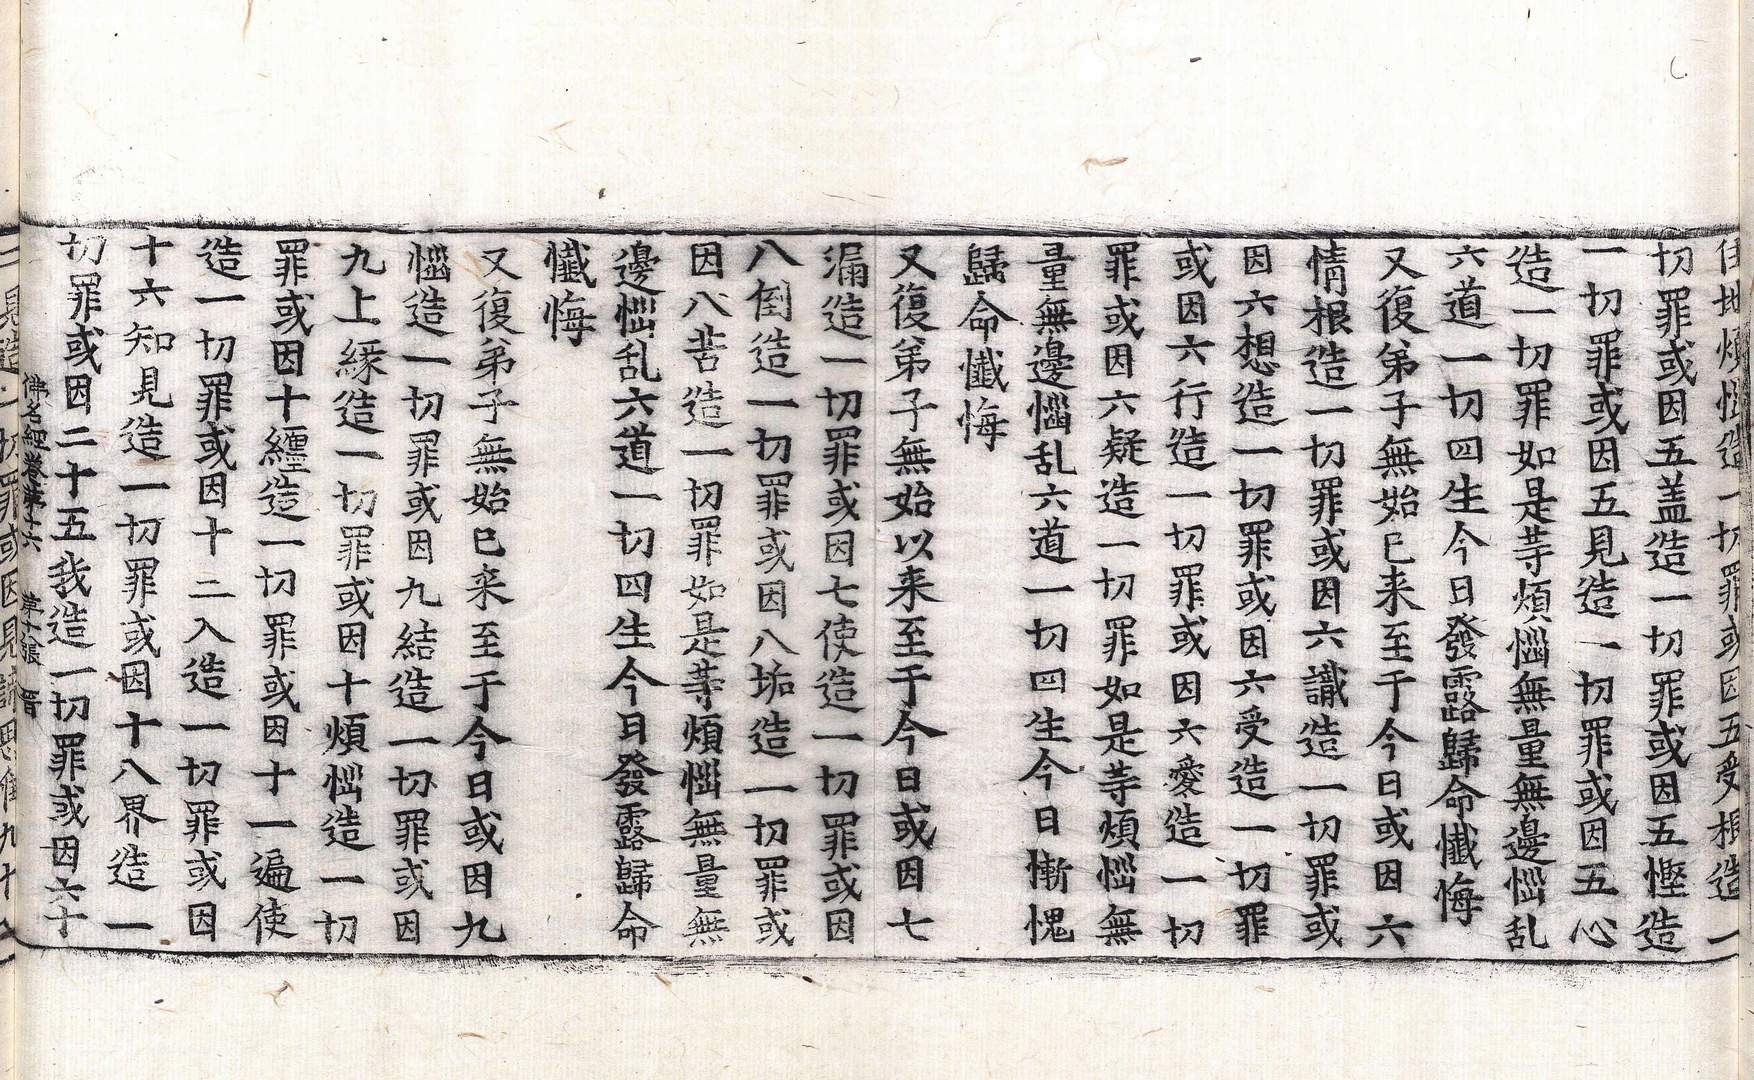 住地煩惱造一切罪或因五受根造一
切罪或因五盖造一切罪或因五慳造
一切罪或因五見造一切罪或因五心
造一切罪如是䓁煩惱無量無邊惱乱
六道一切四生今日發露歸命懺悔
又復弟子無始已来至于今日或因六
情根造一切罪或因六識造一切罪或
因六想造一切罪或因六受造一切罪
或因六行造一切罪或因六愛造一切
罪或因六疑造一切罪如是䓁煩惱無
量無邊惱乱六道一切四生今日慚愧
歸命懺悔
又復弟子無始以来至于今日或因七
漏造一切罪或因七使造一切罪或因
八倒造一切罪或因八垢造一切罪或
因八苦造一切罪如是䓁煩惱無量無
邊惱乱六道一切四生今日發露歸命
懺悔
又復弟子無始已来至于今日或因九
惱造一切罪或因九結造一切罪或因
九上緣造一切罪或因十煩惱造一切
罪或因十纏造一切罪或因十一遍使
造一切罪或因十二入造一切罪或因
十六知見造一切罪或因十八界造一
切罪或因二十五我造一切罪或因六十
佛名經卷第十六 第十張 晋
二見造一切罪或因見諦思惟九十八